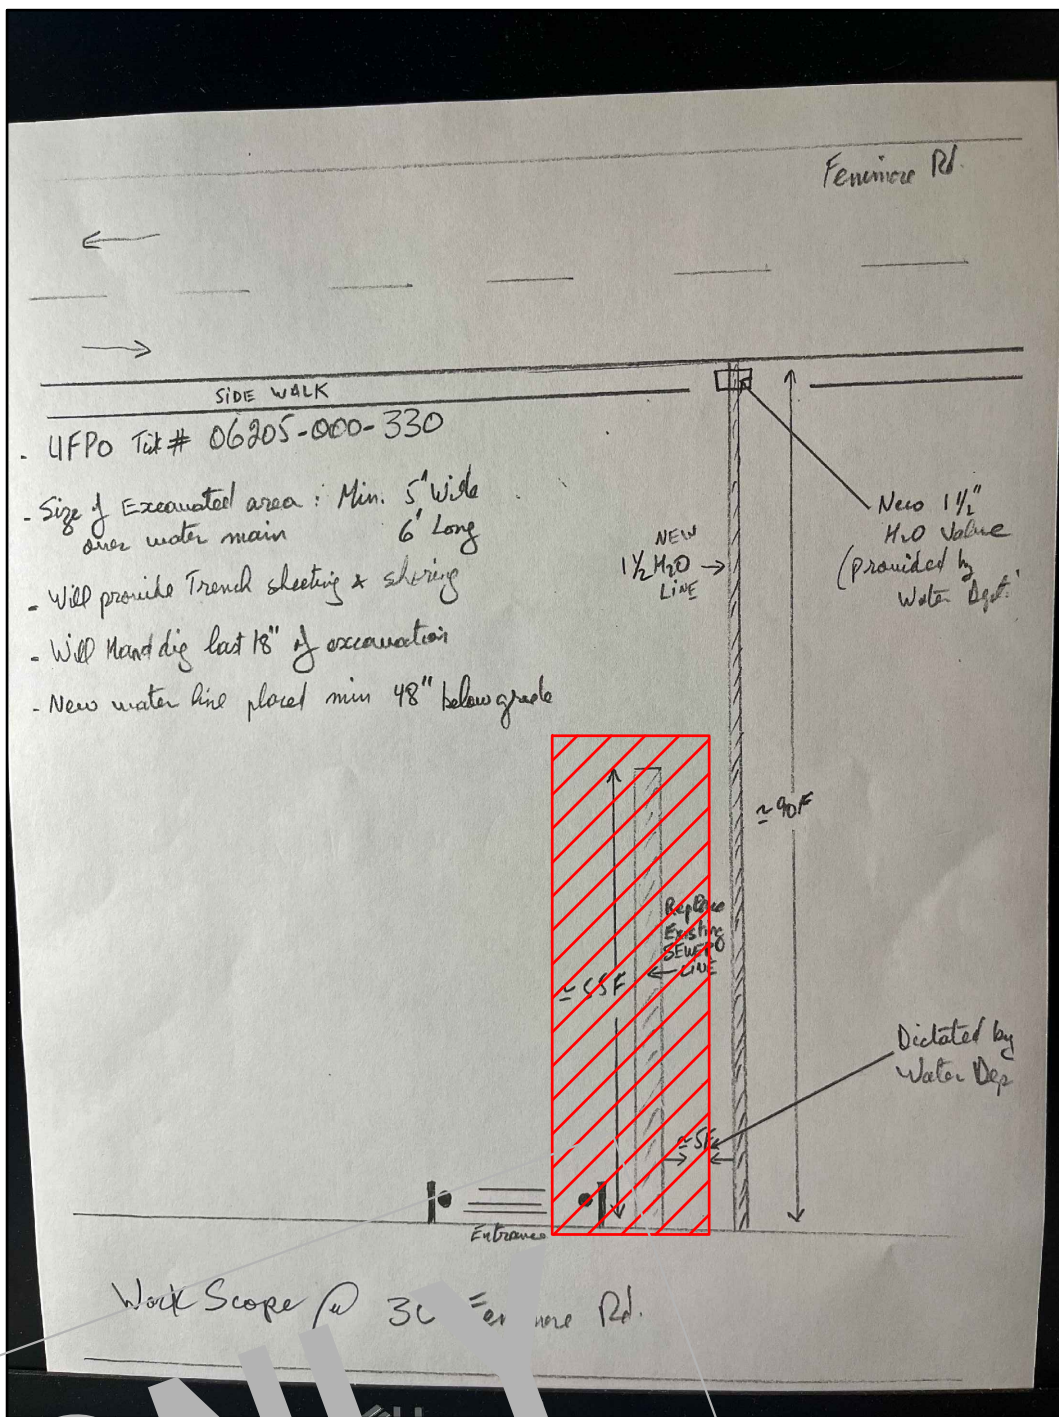 Fenimore Rd.
SIDE WALK
- UFPO Tik# 06205-000-330
- Size of Excavated area : Min. 5' Wide
over water main 6' Long
- Will provide Trench sheeting & shoring
- Will Hand dig last 18" of excavation
- New water line placed min 48" below grade
NEW
1½ H2O
LINE
New 1½"
H2O Valve
(provided by
Water Dept.
≃ 90F
Replace
Existing
SEWER
LINE
≃ 55F
Dictated by
Water Dep
≃ 5F
Entrance
Work Scope @ 30 Fenimore Rd.
ONLY